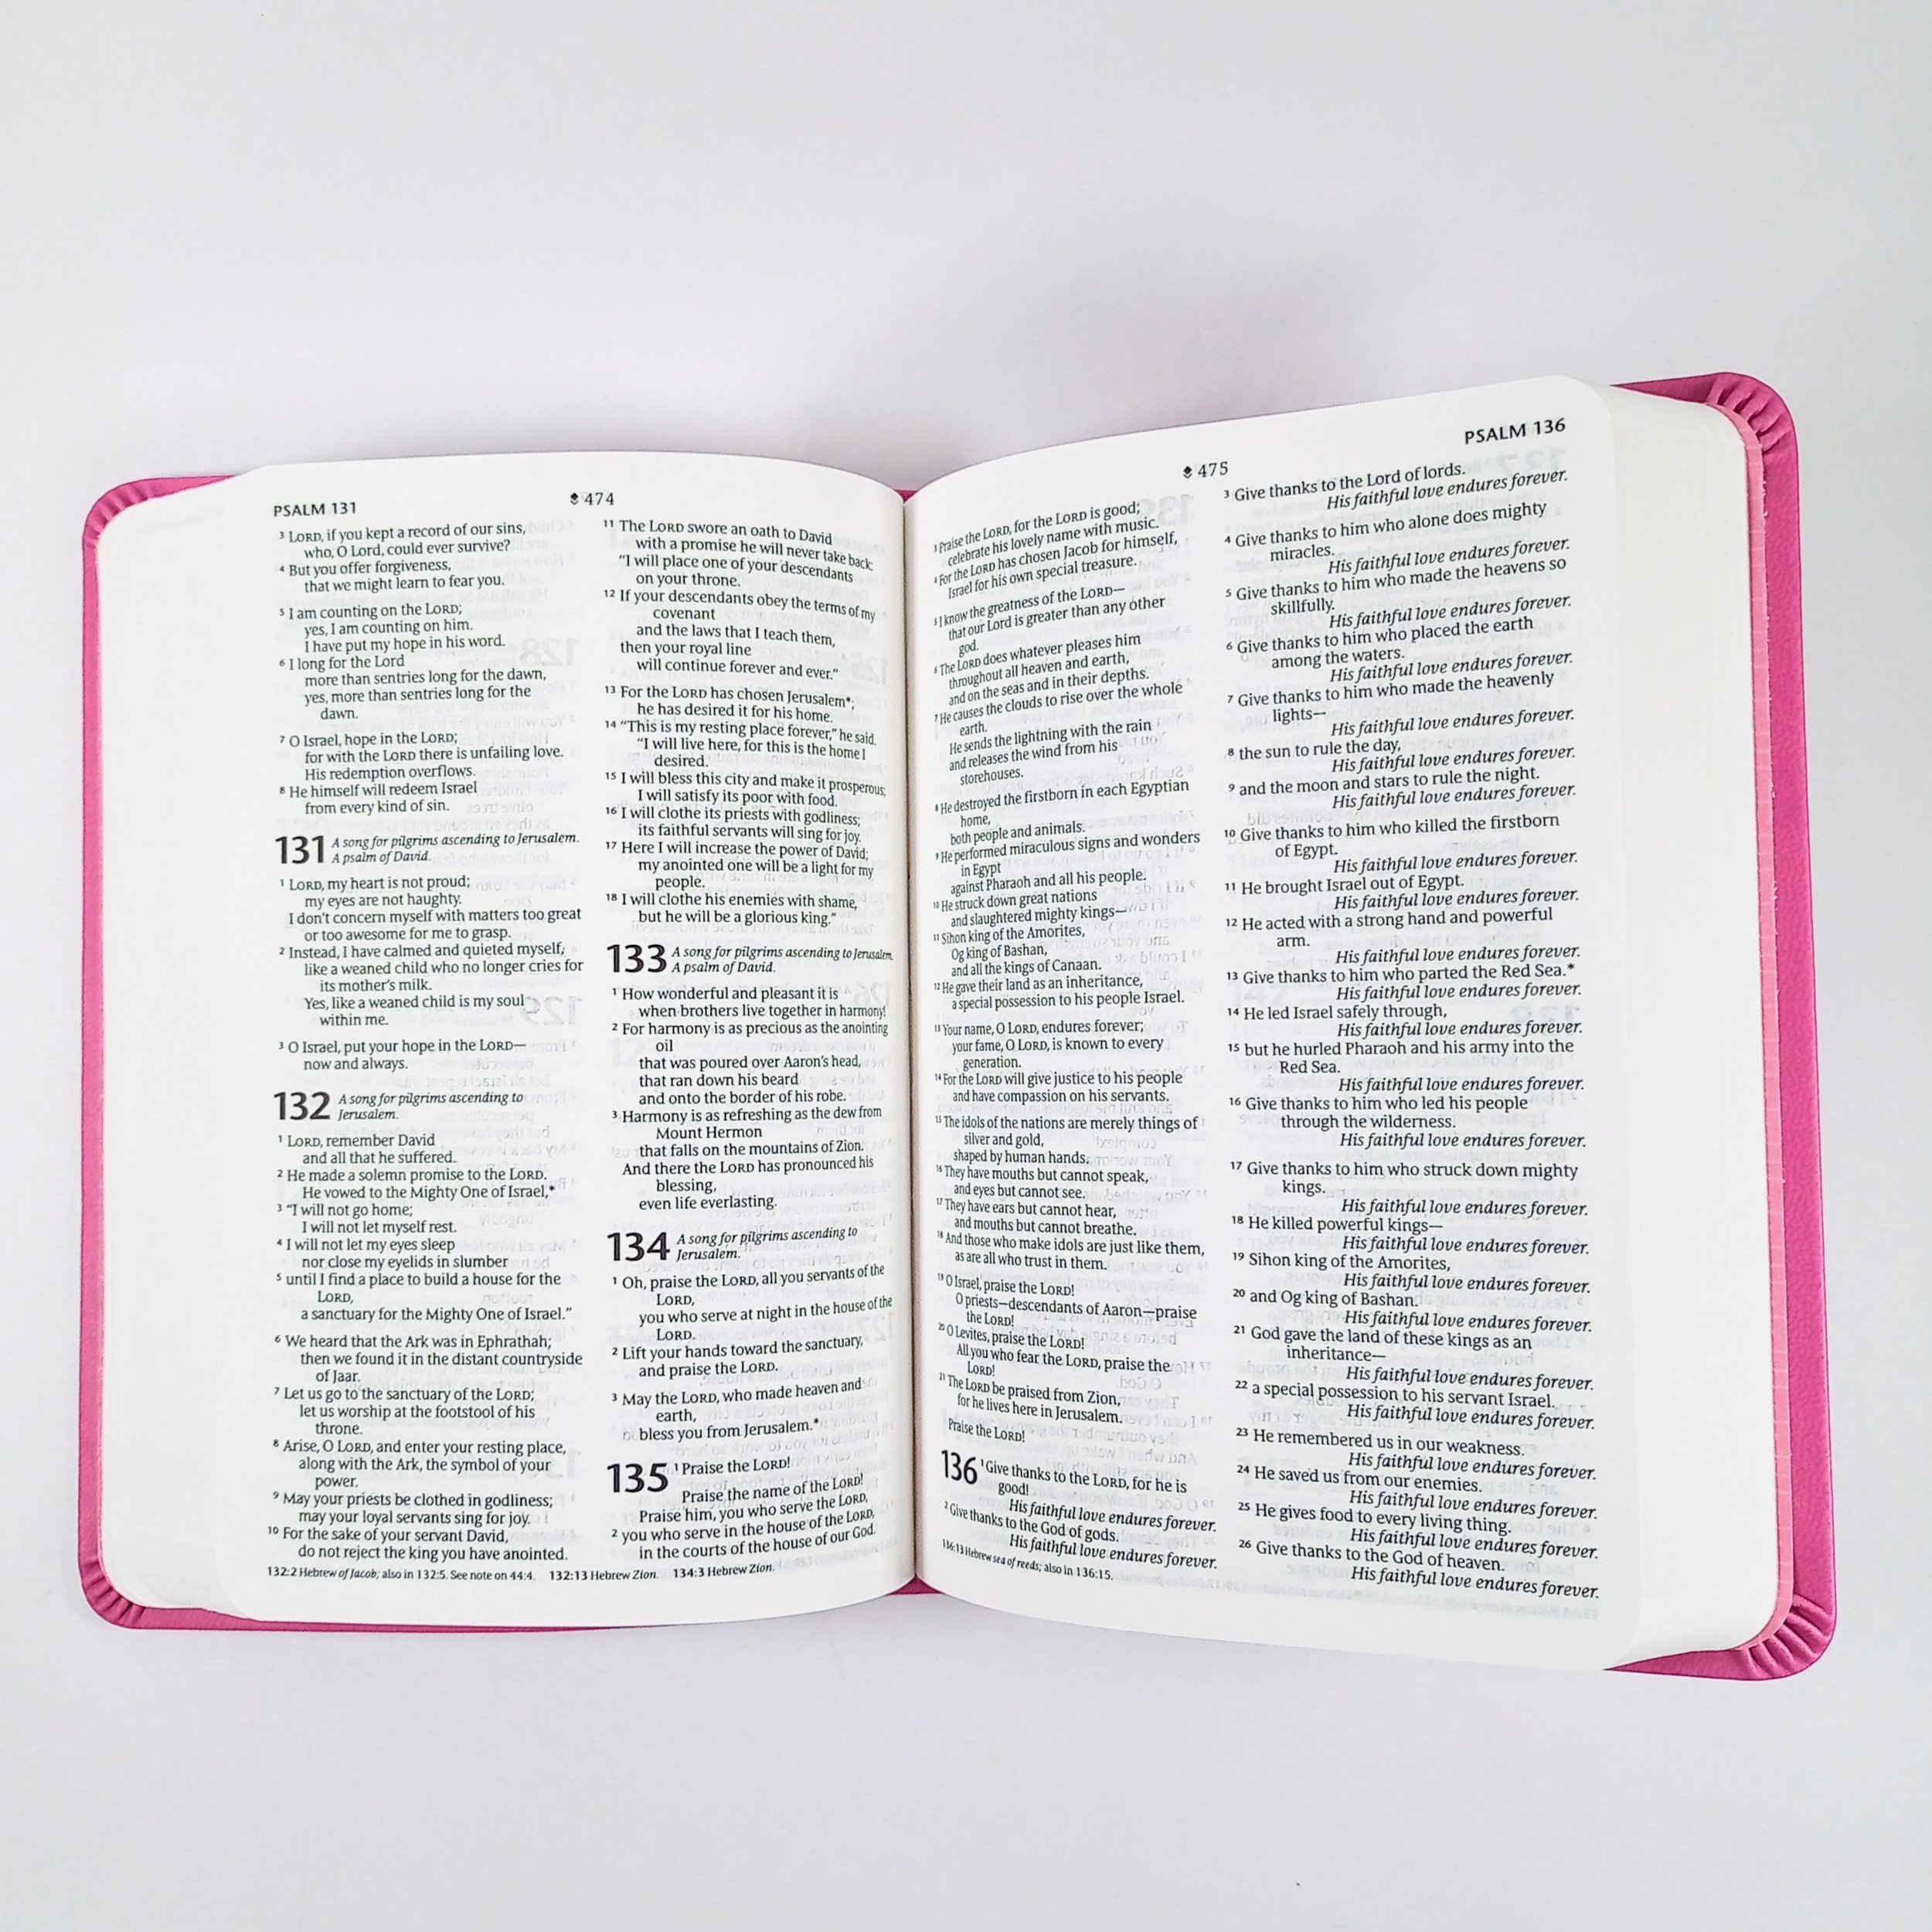 PSALM 131
474
³ LORD, if you kept a record of our sins,
who, O Lord, could ever survive?
⁴ But you offer forgiveness,
that we might learn to fear you.
⁵ I am counting on the LORD;
yes, I am counting on him.
I have put my hope in his word.
⁶ I long for the Lord
more than sentries long for the dawn,
yes, more than sentries long for the
dawn.
⁷ O Israel, hope in the LORD;
for with the LORD there is unfailing love.
His redemption overflows.
⁸ He himself will redeem Israel
from every kind of sin.
131 A song for pilgrims ascending to Jerusalem.
A psalm of David.
¹ LORD, my heart is not proud;
my eyes are not haughty.
I don't concern myself with matters too great
or too awesome for me to grasp.
² Instead, I have calmed and quieted myself,
like a weaned child who no longer cries for
its mother's milk.
Yes, like a weaned child is my soul
within me.
³ O Israel, put your hope in the LORD—
now and always.
132 A song for pilgrims ascending to
Jerusalem.
¹ LORD, remember David
and all that he suffered.
² He made a solemn promise to the LORD.
He vowed to the Mighty One of Israel,*
³ “I will not go home;
I will not let myself rest.
⁴ I will not let my eyes sleep
nor close my eyelids in slumber
⁵ until I find a place to build a house for the
LORD,
a sanctuary for the Mighty One of Israel.”
⁶ We heard that the Ark was in Ephrathah;
then we found it in the distant countryside
of Jaar.
⁷ Let us go to the sanctuary of the LORD;
let us worship at the footstool of his
throne.
⁸ Arise, O LORD, and enter your resting place,
along with the Ark, the symbol of your
power.
⁹ May your priests be clothed in godliness;
may your loyal servants sing for joy.
¹⁰ For the sake of your servant David,
do not reject the king you have anointed.
¹¹ The LORD swore an oath to David
with a promise he will never take back:
“I will place one of your descendants
on your throne.
¹² If your descendants obey the terms of my
covenant
and the laws that I teach them,
then your royal line
will continue forever and ever.”
¹³ For the LORD has chosen Jerusalem*;
he has desired it for his home.
¹⁴ “This is my resting place forever,” he said.
“I will live here, for this is the home I
desired.
¹⁵ I will bless this city and make it prosperous;
I will satisfy its poor with food.
¹⁶ I will clothe its priests with godliness;
its faithful servants will sing for joy.
¹⁷ Here I will increase the power of David;
my anointed one will be a light for my
people.
¹⁸ I will clothe his enemies with shame,
but he will be a glorious king.”
133 A song for pilgrims ascending to Jerusalem.
A psalm of David.
¹ How wonderful and pleasant it is
when brothers live together in harmony!
² For harmony is as precious as the anointing
oil
that was poured over Aaron's head,
that ran down his beard
and onto the border of his robe.
³ Harmony is as refreshing as the dew from
Mount Hermon
that falls on the mountains of Zion.
And there the LORD has pronounced his
blessing,
even life everlasting.
134 A song for pilgrims ascending to
Jerusalem.
¹ Oh, praise the LORD, all you servants of the
LORD,
you who serve at night in the house of the
LORD.
² Lift your hands toward the sanctuary,
and praise the LORD.
³ May the LORD, who made heaven and
earth,
bless you from Jerusalem.*
135 ¹ Praise the LORD!
Praise the name of the LORD!
Praise him, you who serve the LORD,
² you who serve in the house of the LORD,
in the courts of the house of our God.
132:2 Hebrew of Jacob; also in 132:5. See note on 44:4. 132:13 Hebrew Zion. 134:3 Hebrew Zion.
475
PSALM 136
³ Praise the LORD, for the LORD is good;
celebrate his lovely name with music.
⁴ For the LORD has chosen Jacob for himself,
Israel for his own special treasure.
⁵ I know the greatness of the LORD—
that our Lord is greater than any other
god.
⁶ The LORD does whatever pleases him
throughout all heaven and earth,
and on the seas and in their depths.
⁷ He causes the clouds to rise over the whole
earth.
He sends the lightning with the rain
and releases the wind from his
storehouses.
⁸ He destroyed the firstborn in each Egyptian
home,
both people and animals.
⁹ He performed miraculous signs and wonders
in Egypt
against Pharaoh and all his people.
¹⁰ He struck down great nations
and slaughtered mighty kings—
¹¹ Sihon king of the Amorites,
Og king of Bashan,
and all the kings of Canaan.
¹² He gave their land as an inheritance,
a special possession to his people Israel.
¹³ Your name, O LORD, endures forever;
your fame, O LORD, is known to every
generation.
¹⁴ For the LORD will give justice to his people
and have compassion on his servants.
¹⁵ The idols of the nations are merely things of
silver and gold,
shaped by human hands.
¹⁶ They have mouths but cannot speak,
and eyes but cannot see.
¹⁷ They have ears but cannot hear,
and mouths but cannot breathe.
¹⁸ And those who make idols are just like them,
as are all who trust in them.
¹⁹ O Israel, praise the LORD!
O priests—descendants of Aaron—praise
the LORD!
²⁰ O Levites, praise the LORD!
All you who fear the LORD, praise the
LORD!
²¹ The LORD be praised from Zion,
for he lives here in Jerusalem.
Praise the LORD!
136 ¹ Give thanks to the LORD, for he is
good!
His faithful love endures forever.
² Give thanks to the God of gods.
His faithful love endures forever.
³ Give thanks to the Lord of lords.
His faithful love endures forever.
⁴ Give thanks to him who alone does mighty
miracles.
His faithful love endures forever.
⁵ Give thanks to him who made the heavens so
skillfully.
His faithful love endures forever.
⁶ Give thanks to him who placed the earth
among the waters.
His faithful love endures forever.
⁷ Give thanks to him who made the heavenly
lights—
His faithful love endures forever.
⁸ the sun to rule the day,
His faithful love endures forever.
⁹ and the moon and stars to rule the night.
His faithful love endures forever.
¹⁰ Give thanks to him who killed the firstborn
of Egypt.
His faithful love endures forever.
¹¹ He brought Israel out of Egypt.
His faithful love endures forever.
¹² He acted with a strong hand and powerful
arm.
His faithful love endures forever.
¹³ Give thanks to him who parted the Red Sea.*
His faithful love endures forever.
¹⁴ He led Israel safely through,
His faithful love endures forever.
¹⁵ but he hurled Pharaoh and his army into the
Red Sea.
His faithful love endures forever.
¹⁶ Give thanks to him who led his people
through the wilderness.
His faithful love endures forever.
¹⁷ Give thanks to him who struck down mighty
kings.
His faithful love endures forever.
¹⁸ He killed powerful kings—
His faithful love endures forever.
¹⁹ Sihon king of the Amorites,
His faithful love endures forever.
²⁰ and Og king of Bashan.
His faithful love endures forever.
²¹ God gave the land of these kings as an
inheritance—
His faithful love endures forever.
²² a special possession to his servant Israel.
His faithful love endures forever.
²³ He remembered us in our weakness.
His faithful love endures forever.
²⁴ He saved us from our enemies.
His faithful love endures forever.
²⁵ He gives food to every living thing.
His faithful love endures forever.
²⁶ Give thanks to the God of heaven.
His faithful love endures forever.
136:13 Hebrew sea of reeds; also in 136:15.